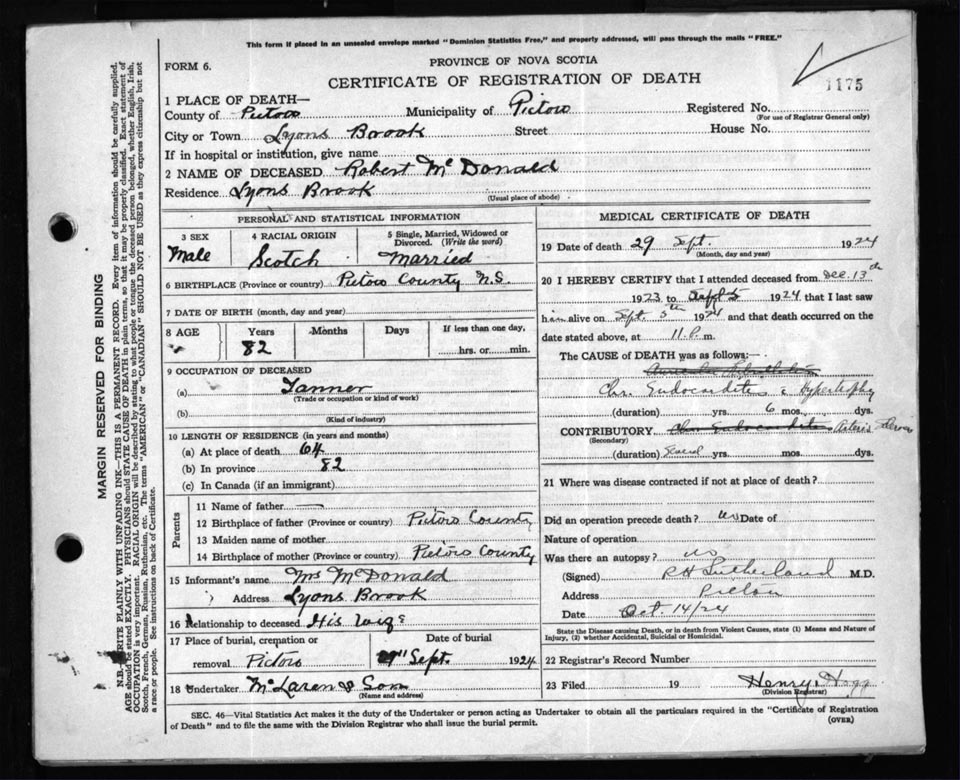 This form if placed in an unsealed envelope marked "Dominion Statistics Free," and properly addressed, will pass through the mails "FREE."
PROVINCE OF NOVA SCOTIA
FORM 6.
CERTIFICATE OF REGISTRATION OF DEATH
1175
1 PLACE OF DEATH—
County of Pictou Municipality of Pictou Registered No.
(For use of Registrar General only)
City or Town Lyons Brook Street House No.
If in hospital or institution, give name
2 NAME OF DECEASED Robert McDonald
Residence Lyons Brook
(Usual place of abode)
PERSONAL AND STATISTICAL INFORMATION
3 SEX 4 RACIAL ORIGIN 5 Single, Married, Widowed or Divorced. (Write the word)
Male Scotch Married
6 BIRTHPLACE (Province or country) Pictou County N.S.
7 DATE OF BIRTH (month, day and year)
8 AGE Years Months Days If less than one day,
82 hrs. or min.
9 OCCUPATION OF DECEASED
(a) Tanner
(Trade or occupation or kind of work)
(b)
(Kind of industry)
10 LENGTH OF RESIDENCE (in years and months)
(a) At place of death 64
(b) In province 82
(c) In Canada (if an immigrant)
Parents
11 Name of father —
12 Birthplace of father (Province or country) Pictou County
13 Maiden name of mother
14 Birthplace of mother (Province or country) Pictou County
15 Informant's name Mrs McDonald
Address Lyons Brook
16 Relationship to deceased His wife
17 Place of burial, cremation or Date of burial
removal Pictou Sept. 1924
18 Undertaker McLaren & Son
(Name and address)
MEDICAL CERTIFICATE OF DEATH
19 Date of death 29 Sept. 1924
(Month, day and year)
20 I HEREBY CERTIFY that I attended deceased from Dec. 13th
1923 to Sept 5 1924 that I last saw
him alive on Sept 5th 1924 and that death occurred on the
date stated above, at 11 P. m.
The CAUSE of DEATH was as follows:—
Chr. Endocarditis & Hypertrophy
(duration) yrs. 6 mos. dys.
CONTRIBUTORY Chr Endocarditis Arterio
(Secondary)
(duration) Several yrs. mos. dys.
21 Where was disease contracted if not at place of death?
Did an operation precede death? no Date of
Nature of operation
Was there an autopsy? no
(Signed) R H Sutherland M.D.
Address Pictou
Date Oct. 14/24
State the Disease causing Death, or in death from Violent Causes, state (1) Means and Nature of
Injury, (2) whether Accidental, Suicidal or Homicidal.
22 Registrar's Record Number
23 Filed 19 Henry Hogg
(Division Registrar)
SEC. 46—Vital Statistics Act makes it the duty of the Undertaker or person acting as Undertaker to obtain all the particulars required in the "Certificate of Registration
of Death" and to file the same with the Division Registrar who shall issue the burial permit.
(OVER)
MARGIN RESERVED FOR BINDING
N.B.—WRITE PLAINLY WITH UNFADING INK—THIS IS A PERMANENT RECORD. Every item of information should be carefully supplied.
AGE should be stated EXACTLY. PHYSICIANS should STATE CAUSE OF DEATH in plain terms, so that it may be properly classified. Exact statement of
OCCUPATION is very important. RACIAL ORIGIN will be described by stating to what people or tongue the deceased person belonged, whether English, Irish,
Scotch, French, German, Russian, Ruthenian, etc. The terms "AMERICAN" or "CANADIAN" SHOULD NOT BE USED as they express citizenship but not
a race or people. See instructions on back of Certificate.